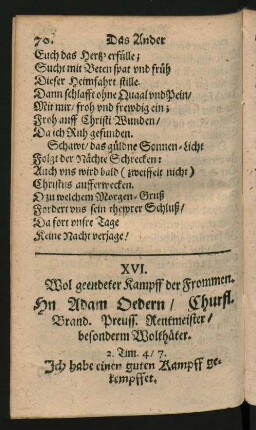 70. Das Ander
Euch das Hertz erfülle;
Sucht mit Beten spat und früh
Dieser Heimfahrt stille.
Dann schlafft ohne Quaal vnd Pein/
Mit mir/ froh und frewdig ein;
Froh auff Christi Wunden/
Da ich Ruh gefunden.
Schawt/ das güldne Sonnen-Licht
Folgt der Nächte Schrecken:
Auch vns wird bald (zweiffelt nicht)
Christus aufferwecken.
O zu welchem Morgen-Gruß
Fordert vns sein thewrer Schluß/
Da fort vnsre Tage
Keine Nacht verjage!
XVI.
Wol geendeter Kampff der Frommen.
Hn Adam Oedern/ Churfl.
Brand. Preuss. Rentmeister/
besonderm Wolthäter.
2. Tim. 4/ 7.
Ich habe einen guten Kampff ge-
kempffet.